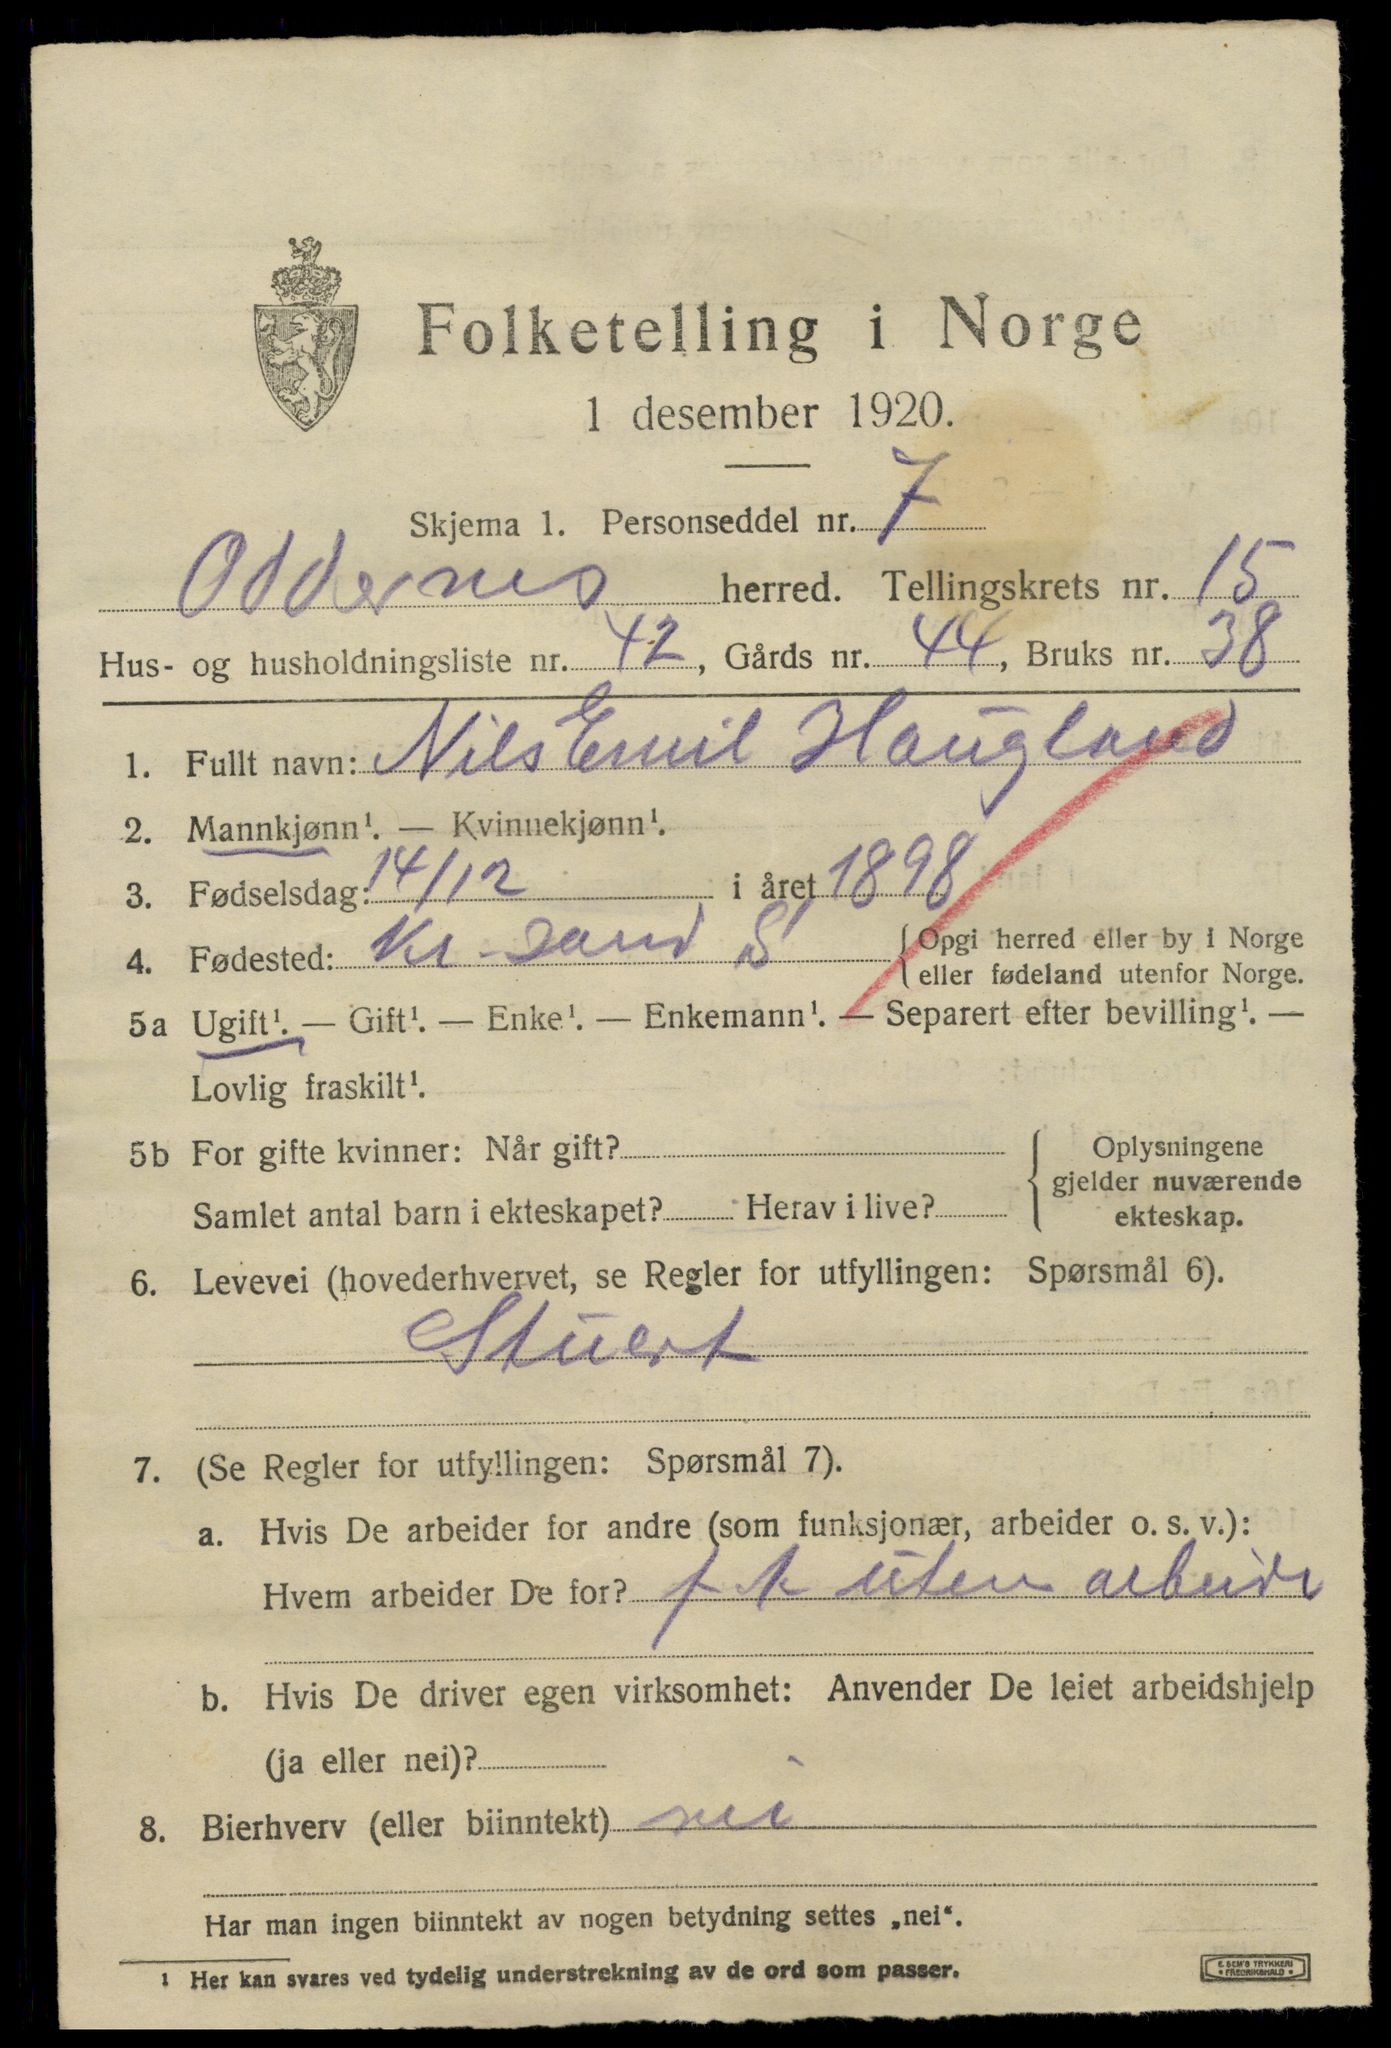 Folketelling i Norge
1 desember 1920.
Skjema 1. Personseddel nr. 7
Oddernes herred. Tellingskrets nr. 15
Hus- og husholdningsliste nr. 42, Gårds nr. 44, Bruks nr. 38
1. Fullt navn: Nils Emil Haugland
2. Mannkjønn¹. — Kvinnekjønn¹.
3. Fødselsdag: 14/12 i året 1898
4. Fødested: Kr-sand S {Opgi herred eller by i Norge
eller fødeland utenfor Norge.
5a Ugift¹. — Gift¹. — Enke¹. — Enkemann¹. — Separert efter bevilling¹. —
Lovlig fraskilt¹.
5b For gifte kvinner: Når gift?
Samlet antal barn i ekteskapet? Herav i live?
Oplysningene
gjelder nuværende
ekteskap.
6. Levevei (hovederhvervet, se Regler for utfyllingen: Spørsmål 6).
Stuert
7. (Se Regler for utfyllingen: Spørsmål 7).
a. Hvis De arbeider for andre (som funksjonær, arbeider o. s. v.):
Hvem arbeider De for? f t uten arbeide
b. Hvis De driver egen virksomhet: Anvender De leiet arbeidshjelp
(ja eller nei)?
8. Bierhverv (eller biinntekt) nei
Har man ingen biinntekt av nogen betydning settes „nei“.
¹ Her kan svares ved tydelig understrekning av de ord som passer.
E. SEM'S TRYKKERI
• FREDRIKSHALD •